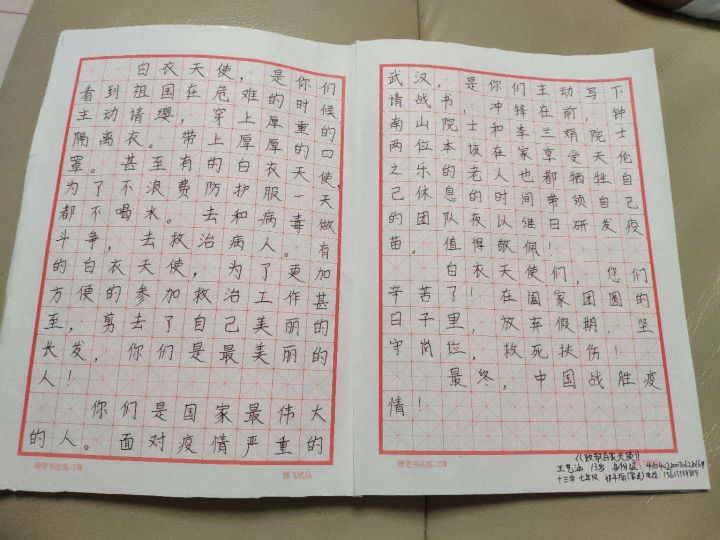 白衣天使，是你们
看到祖国在危难的时候
主动请缨，穿上厚重的
隔离衣。带上厚厚的口
罩。甚至有的白衣天使，
为了不浪费防护服一天
都不喝水。去和病毒做
斗争，去救治病人。有
的白衣天使，为了更加
方便的参加救治工作甚
至，剪去了自己美丽的
长发，你们是最美丽的
人！
你们是国家最伟大
的人。面对疫情严重的
硬笔书法练习簿 腾飞纸品
武汉，是你们主动写下
请战书，冲锋在前，钟
南山院士和李兰娟院士
两位本该在家享受天伦
之乐的老人也都牺牲自
己休息的时间带领自己
的团队夜以继日研发疫
苗。值得敬佩！
白衣天使们，您们
辛苦了！在阖家团圆的
日子里，放弃假期，坚
守岗位，救死扶伤！
最终，中国战胜疫
情！
硬笔书法练习簿
《致敬白衣天使》
13岁 身份证：
十三中 七年级 电话：